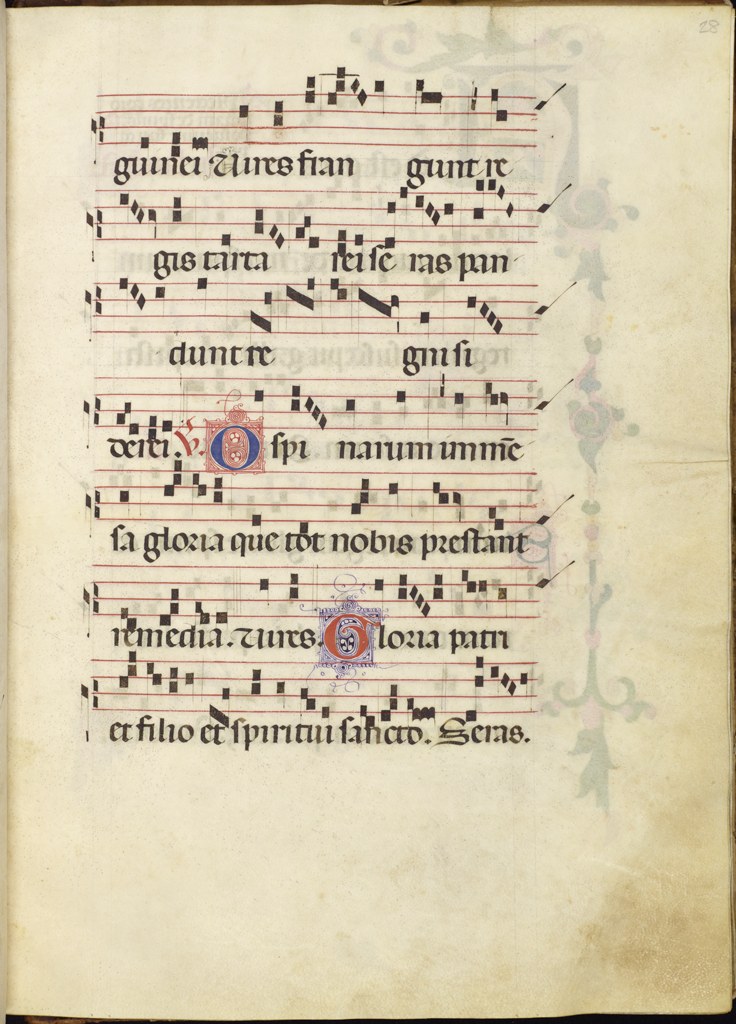 28
guinei Vires fran gunt re
gis tarta rei se ras pan
dunt re gni si
derei. V. O spi narum imme̅
sa gloria que tot nobis prestant
remedia. Vires. Gloria patri
et filio et spiritui sancto. Seras.